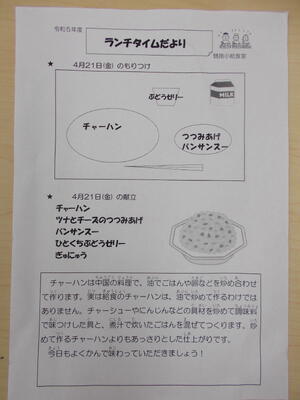 令和5年度
ランチタイムだより
小給食室
★ 4月21日(金) のもりつけ
ぶどうゼリー
MILK
チャーハン
つつみあげ
バンサンスー
★ 4月21日(金) の献立
チャーハン
ツナとチーズのつつみあげ
バンサンスー
ひとくちぶどうゼリー
ぎゅにゅう
チャーハンは中国の料理で、油でごはんや卵などを炒め合わせ
て作ります。実は給食のチャーハンは、油で炒めて作るわけでは
ありません。チャーシューやにんじんなどの具材を炒めて調味料
で味つけした具と、煮汁で炊いたごはんを混ぜてつくります。炒
めて作るチャーハンよりもあっさりとした仕上がりです。
今日もよくかんで味わっていただきましょう!